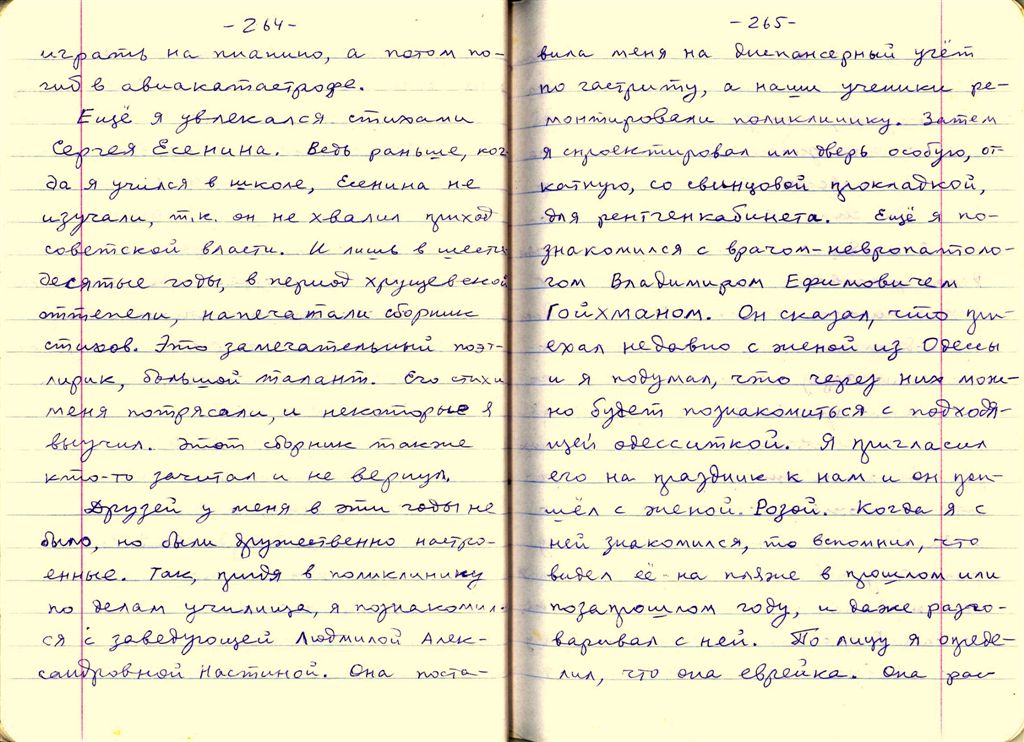 -264-
играть на пианино, а потом по-
гиб в авиакатастрофе.
Ещё я увлекался стихами
Сергея Есенина. Ведь раньше, ког
да я учился в школе, Есенина не
изучали, т.к. он не хвалил приход
советской власти. И лишь в шести
десятые годы, в период хрущевской
оттепели, напечатали сборник
стихов. Это замечательный поэт-
лирик, большой талант. Его стихи
меня потрясали, и некоторые я
выучил. Этот сборник также
кто-то зачитал и не вернул.
Друзей у меня в эти годы не
было, но были дружественно настро-
енные. Так, придя в поликлинику
по делам училища, я познакомил-
ся с заведующей Людмилой Алек-
сандровной Настиной. Она поста-
-265-
вила меня на диспансерный учёт
по гастриту, а наши ученики ре-
монтировали поликлинику. Затем
я спроектировал им дверь особую, от
катную, со свинцовой прокладкой,
для рентгенкабинета. Ещё я по-
знакомился с врачом-невропатоло-
гом Владимиром Ефимовичем
Гойхманом. Он сказал, что при-
ехал недавно с женой из Одессы
и я подумал, что через них мож-
но будет познакомиться с подходя-
щей одесситкой. Я пригласил
его на праздник к нам и он при-
шёл с женой Розой. Когда я с
ней знакомился, то вспомнил, что
видел её на пляже в прошлом или
позапрошлом году, и даже разго-
варивал с ней. По лицу я опреде-
лил, что она еврейка. Она рас